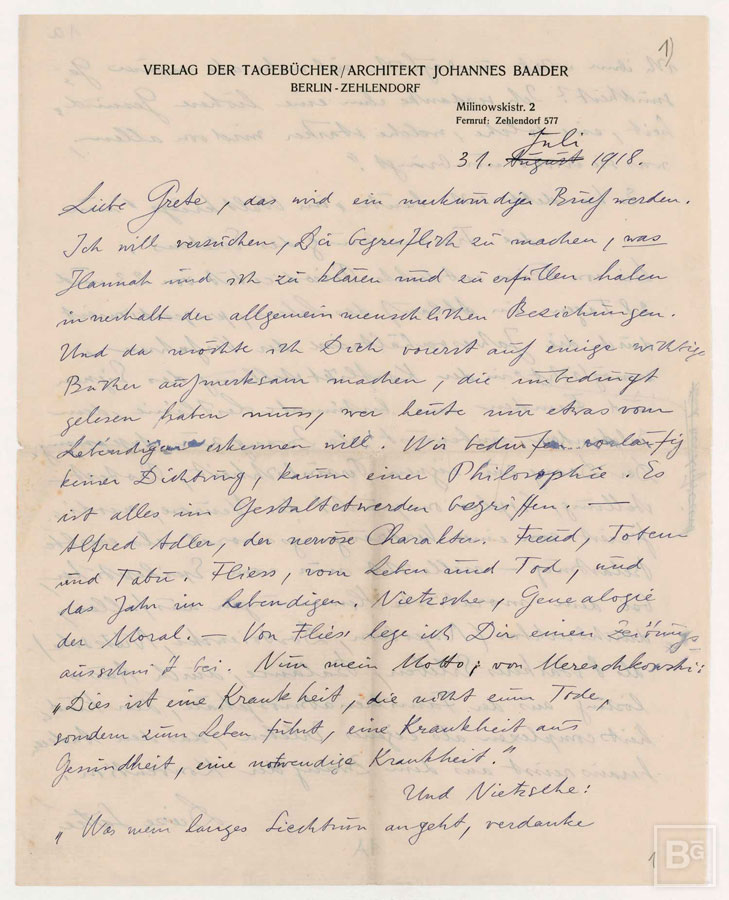 1)
VERLAG DER TAGEBÜCHER/ARCHITEKT JOHANNES BAADER
BERLIN-ZEHLENDORF
Milinowskistr. 2
Fernruf: Zehlendorf 577
Juli
31. August 1918.
Liebe Grete, das wird ein merkwürdiger Brief werden.
Ich will versuchen, Dir begreiflich zu machen, was
Hannah und ich zu klären und zu erfüllen haben
innerhalb der allgemein menschlichen Beziehungen.
Und da möchte ich Dich vorerst auf einige wichtige
Bücher aufmerksam machen, die unbedingt
gelesen haben muss, wer heute nur etwas vom
Lebendigen erkennen will. Wir bedürfen vorläufig
keiner Dichtung, kaum einer Philosophie. Es
ist alles im Gestaltetwerden begriffen. —
Alfred Adler, der nervöse Charakter. Freud, Totem
und Tabu. Fliess, vom Leben und Tod, und
das Jahr im Lebendigen. Nietzsche, Genealogie
der Moral. — Von Fliess lege ich Dir einen Zeitungs
ausschnitt bei. Nun mein Motto; von Mereschkowski:
„Dies ist eine Krankheit, die nicht zum Tode,
sondern zum Leben führt, eine Krankheit aus
Gesundheit, eine notwendige Krankheit."
Und Nietzsche:
„Was mein langes Siechtum angeht, verdanke
1
BG